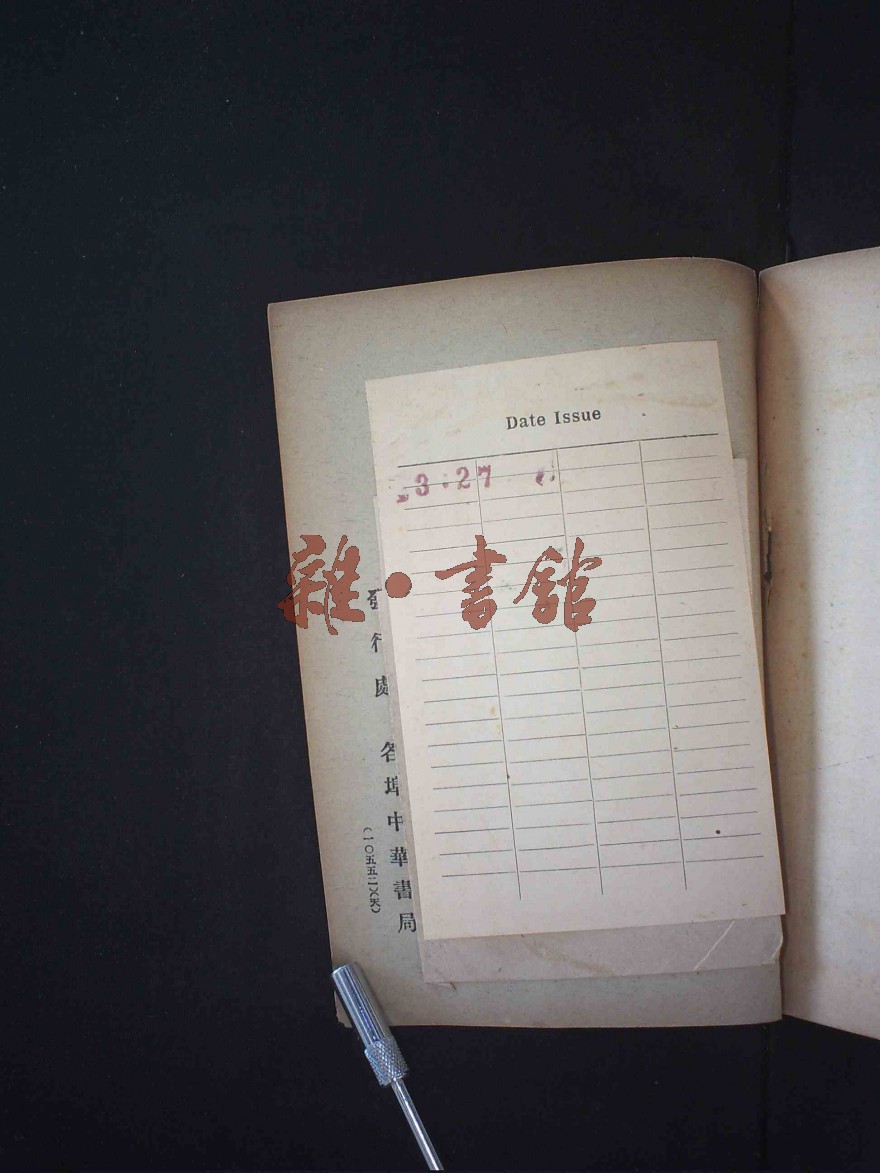 Date Issue
3 27
雜·書館
發行處 各埠中華書局
(一〇五五二)(天)